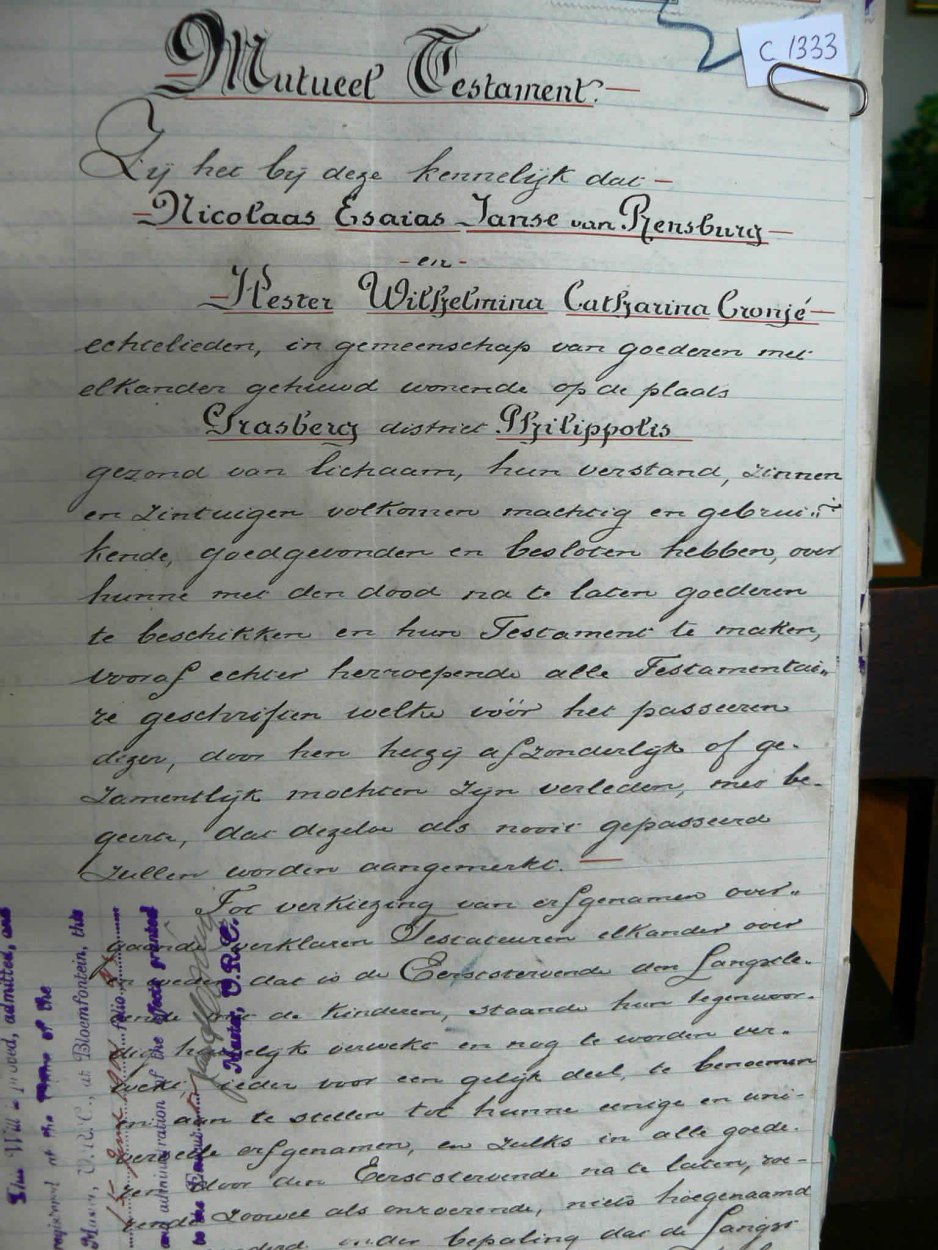 C 1333
Mutueel Testament.
Zij het bij deze kennelijk dat
Nicolaas Esaias Janse van Rensburg
- en -
Hester Wilhelmina Catharina Cronjé
echtelieden, in gemeenschap van goederen met
elkander gehuwd wonende op de plaats
Grasberg district Philippolis
gezond van lichaam, hun verstand, zinnen
en zintuigen volkomen machtig en gebrui„
kende, goedgevonden en besloten hebben, over
hunne met den dood na te laten goederen
te beschikken en hun Testament te maken,
vooraf echter herroepende alle Testamentai„
re geschriften welke vóór het passeeren
dezer, door hen hetzij afzonderlijk of ge-
zamentlijk mochten zijn verleden, met be-
geerte, dat dezelve als nooit gepasseerd
zullen worden aangemerkt.
Tot verkiezing van erfgenamen over-
gaande verklaren Testateuren elkander over
en weder, dat is de Eerststervende den Langstle-
vende met de kinderen, staande hun tegenwoor-
dig huwelijk verwekt en nog te worden ver-
wekt ieder voor een gelijk deel, te benoemen
en aan te stellen tot hunne eenige en uni-
verseele erfgenamen, en zulks in alle goede-
ren door den Eerststervende na te laten, roe-
rende zoowel als onroerende, niets hoegenaamd
onder bepaling dat de Langst
This Will is proved, admitted, and
registered at the of the
Master, O.R.C., at Bloemfontein, this
folio
and administration of the effects granted
to the
Master, O.R.C.